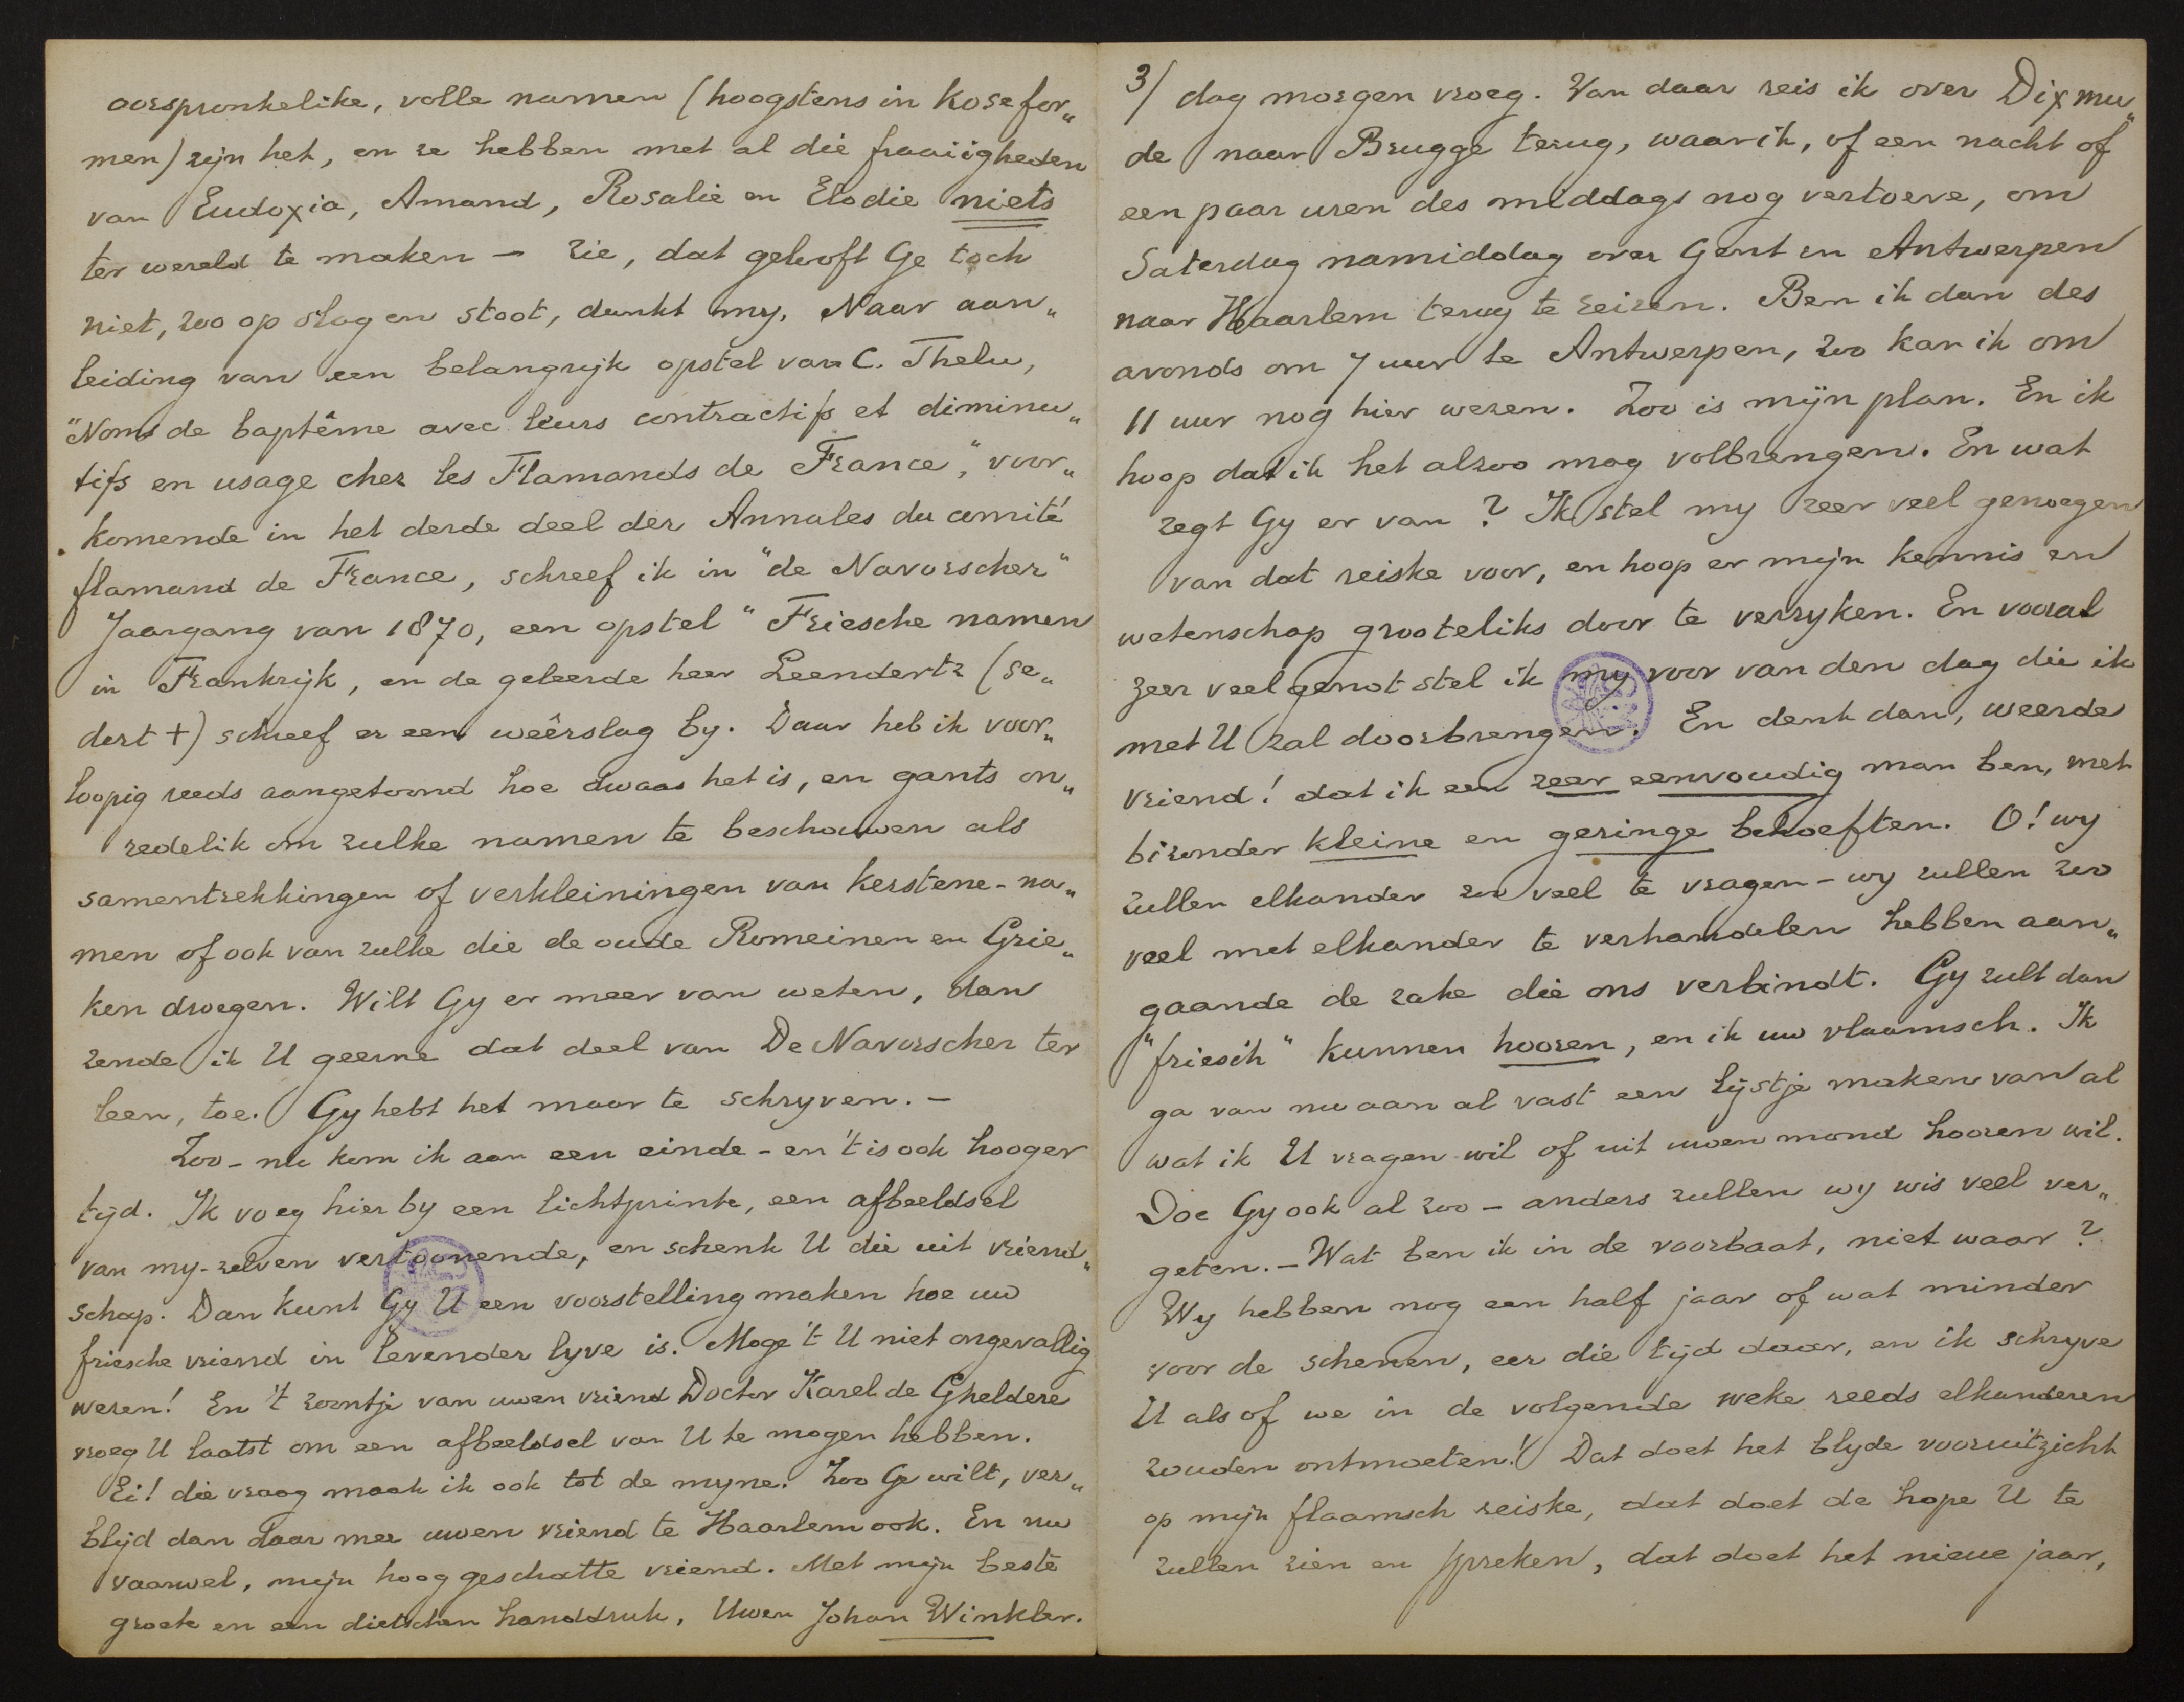 oorspronkelike, volle namen (hoogstens in Kosefor„
men) zijn het, en ze hebben met al die fraaiigheden
van Eudoxia, Amand, Rosalie en Elodie niets
ter wereld te maken – zie, dat gelooft Ge toch
niet, zoo op slag en stoot, dunkt my. Naar aan„
leiding van een belangrijk opstel van C. Thelu,
"Noms de baptême avec leurs contractifs et diminu„
tifs en usage chez les Flamands de France", voor„
komende in het derde deel der Annales du comité
flamand de France, schreef ik in "de Navorscher"
Jaargang van 1870, een opstel "Friesche namen
in Frankrijk, en de geleerde heer Leendertz (se„
dert †) schreef er een weêrslag by. Daar heb ik voor„
loopig reeds aangetoond hoe dwaas het is, en gants on„
redelik om zulke namen te beschouwen als
samentrekkingen of verkleiningen van kerstene-na„
men of ook van zulke die de oude Romeinen en Grie„
ken droegen. Wilt Gy er meer van weten, dan
zende ik U geerne dat deel van De Navorscher ter
leen, toe. Gy hebt het maar te schryven. –
Zoo – nu kom ik aan een einde – en 't is ook hooger
tijd. Ik voeg hier by een lichtprinte, een afbeeldsel
van my-zelven vertoonende, en schenk U die uit vriend„
schap. Dan kunt Gy U een voorstelling maken hoe uw
friesche vriend in levender lyve is. Moge 't U niet ongevallig
wezen! En 't zoontje van uwen vriend Doctor Karel de Gheldere
vroeg U laatst om een afbeeldsel van U te mogen hebben.
Ei! die vraag maak ik ook tot de myne. Zoo Ge wilt, ver„
blijd dan daar mee uwen vriend te Haarlem ook. En nu
vaarwel, mijn hoog geschatte vriend. Met mijn beste
groete en een dietschen handdruk, Uwen Johan Winkler.
3/ dag morgen vroeg. Van daar reis ik over Dixmu„
de naar Brugge terug, waar ik, of een nacht of
een paar uren des middags nog vertoeve, om
Saterdag namiddag over Gent en Antwerpen
naar Haarlem terug te reizen. Ben ik dan des
avonds om 7 uur te Antwerpen, zoo kan ik om
11 uur nog hier wezen. Zoo is mijn plan. En ik
hoop dat ik het alzoo mag volbrengen. En wat
zegt Gy er van? Ik stel my zeer veel genoegen
van dat reiske voor, en hoop er mijn kennis en
wetenschap grooteliks door te verryken. En vooral
zeer veel genot stel ik my voor van den dag die ik
met U zal doorbrengen. En denk dan, weerde
vriend! dat ik een zeer eenvoudig man ben, met
bizonder kleine en geringe behoeften. O! wy
zullen elkander zoo veel te vragen – wy zullen zoo
veel met elkander te verhandelen hebben aan„
gaande de zake die ons verbindt. Gy zult dan
"friesch" kunnen hooren, en ik uw vlaamsch. Ik
ga van nu aan al vast een lijstje maken van al
wat ik U vragen wil of uit uwen mond hooren wil.
Doe Gy ook al zoo – anders zullen wy wis veel ver„
geten. – Wat ben ik in de voorbaat, niet waar?
Wy hebben nog een half jaar of wat minder
voor de schenen, eer die tijd daar, en ik schryve
U als of we in de volgende weke reeds elkanderen
zouden ontmoeten! Dat doet het blyde vooruitzicht
op mijn flaamsch reiske, dat doet de hope U te
zullen zien en spreken, dat doet het nieue jaar,